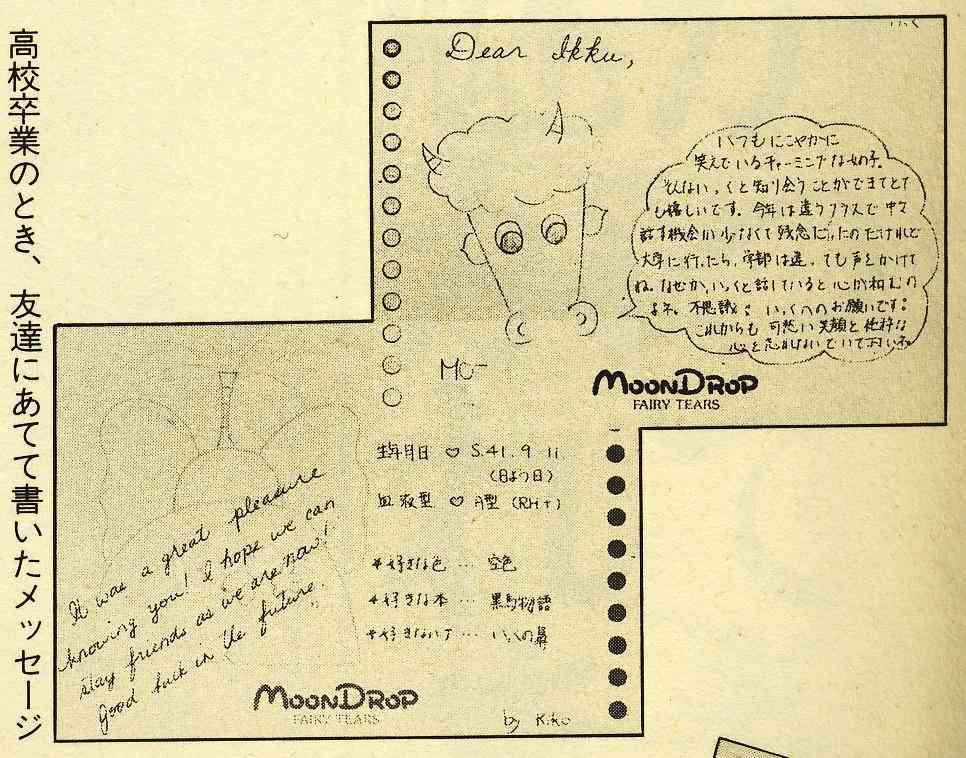 高校卒業のとき、友達にあてて書いたメッセージ
Dear Ikku,
いつもにこやかに
笑えているチャーミングな女の子。
そんないっくと知り合うことができてとて
も嬉しいです。今年は違うクラスで中々
話す機会が少なくて残念だったのだけれど
大学に行ったら、学部は違っても声をかけて
ね。なぜか、いっくと話していると心が和むの
よネ。不思議。いっくへのお願いです。
これからも可愛い笑顔と
心を忘れないでいて下さいネ
Mo-
MOONDROP
FAIRY TEARS
生年月日 ♡ S.41. 9. 11
(日よう日)
血液型 ♡ A型 (RH+)
*好きな色 … 空色
*好きな本 … 黒馬物語
*好きな … いっくの鼻
It was a great pleasure
knowing you! I hope we can
stay friends as we are now!
Good luck in the future.
MOONDROP
FAIRY TEARS
by Kiko